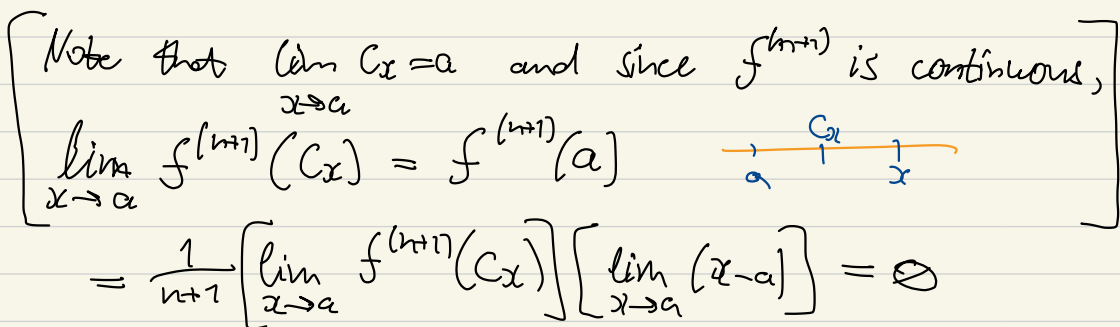 [Note that lim_{x→a} C_x = a and since f^{(n+1)} is continuous,
lim_{x→a} f^{(n+1)}(C_x) = f^{(n+1)}(a) a C_x x]
= 1/(n+1) [lim_{x→a} f^{(n+1)}(C_x)] [lim_{x→a} (x-a)] = 0